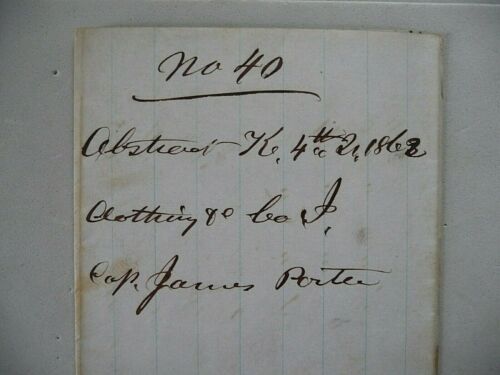 No 40
Abstract K, 4th Qr, 1862
Clothing &c Co I,
Cap. James Porter